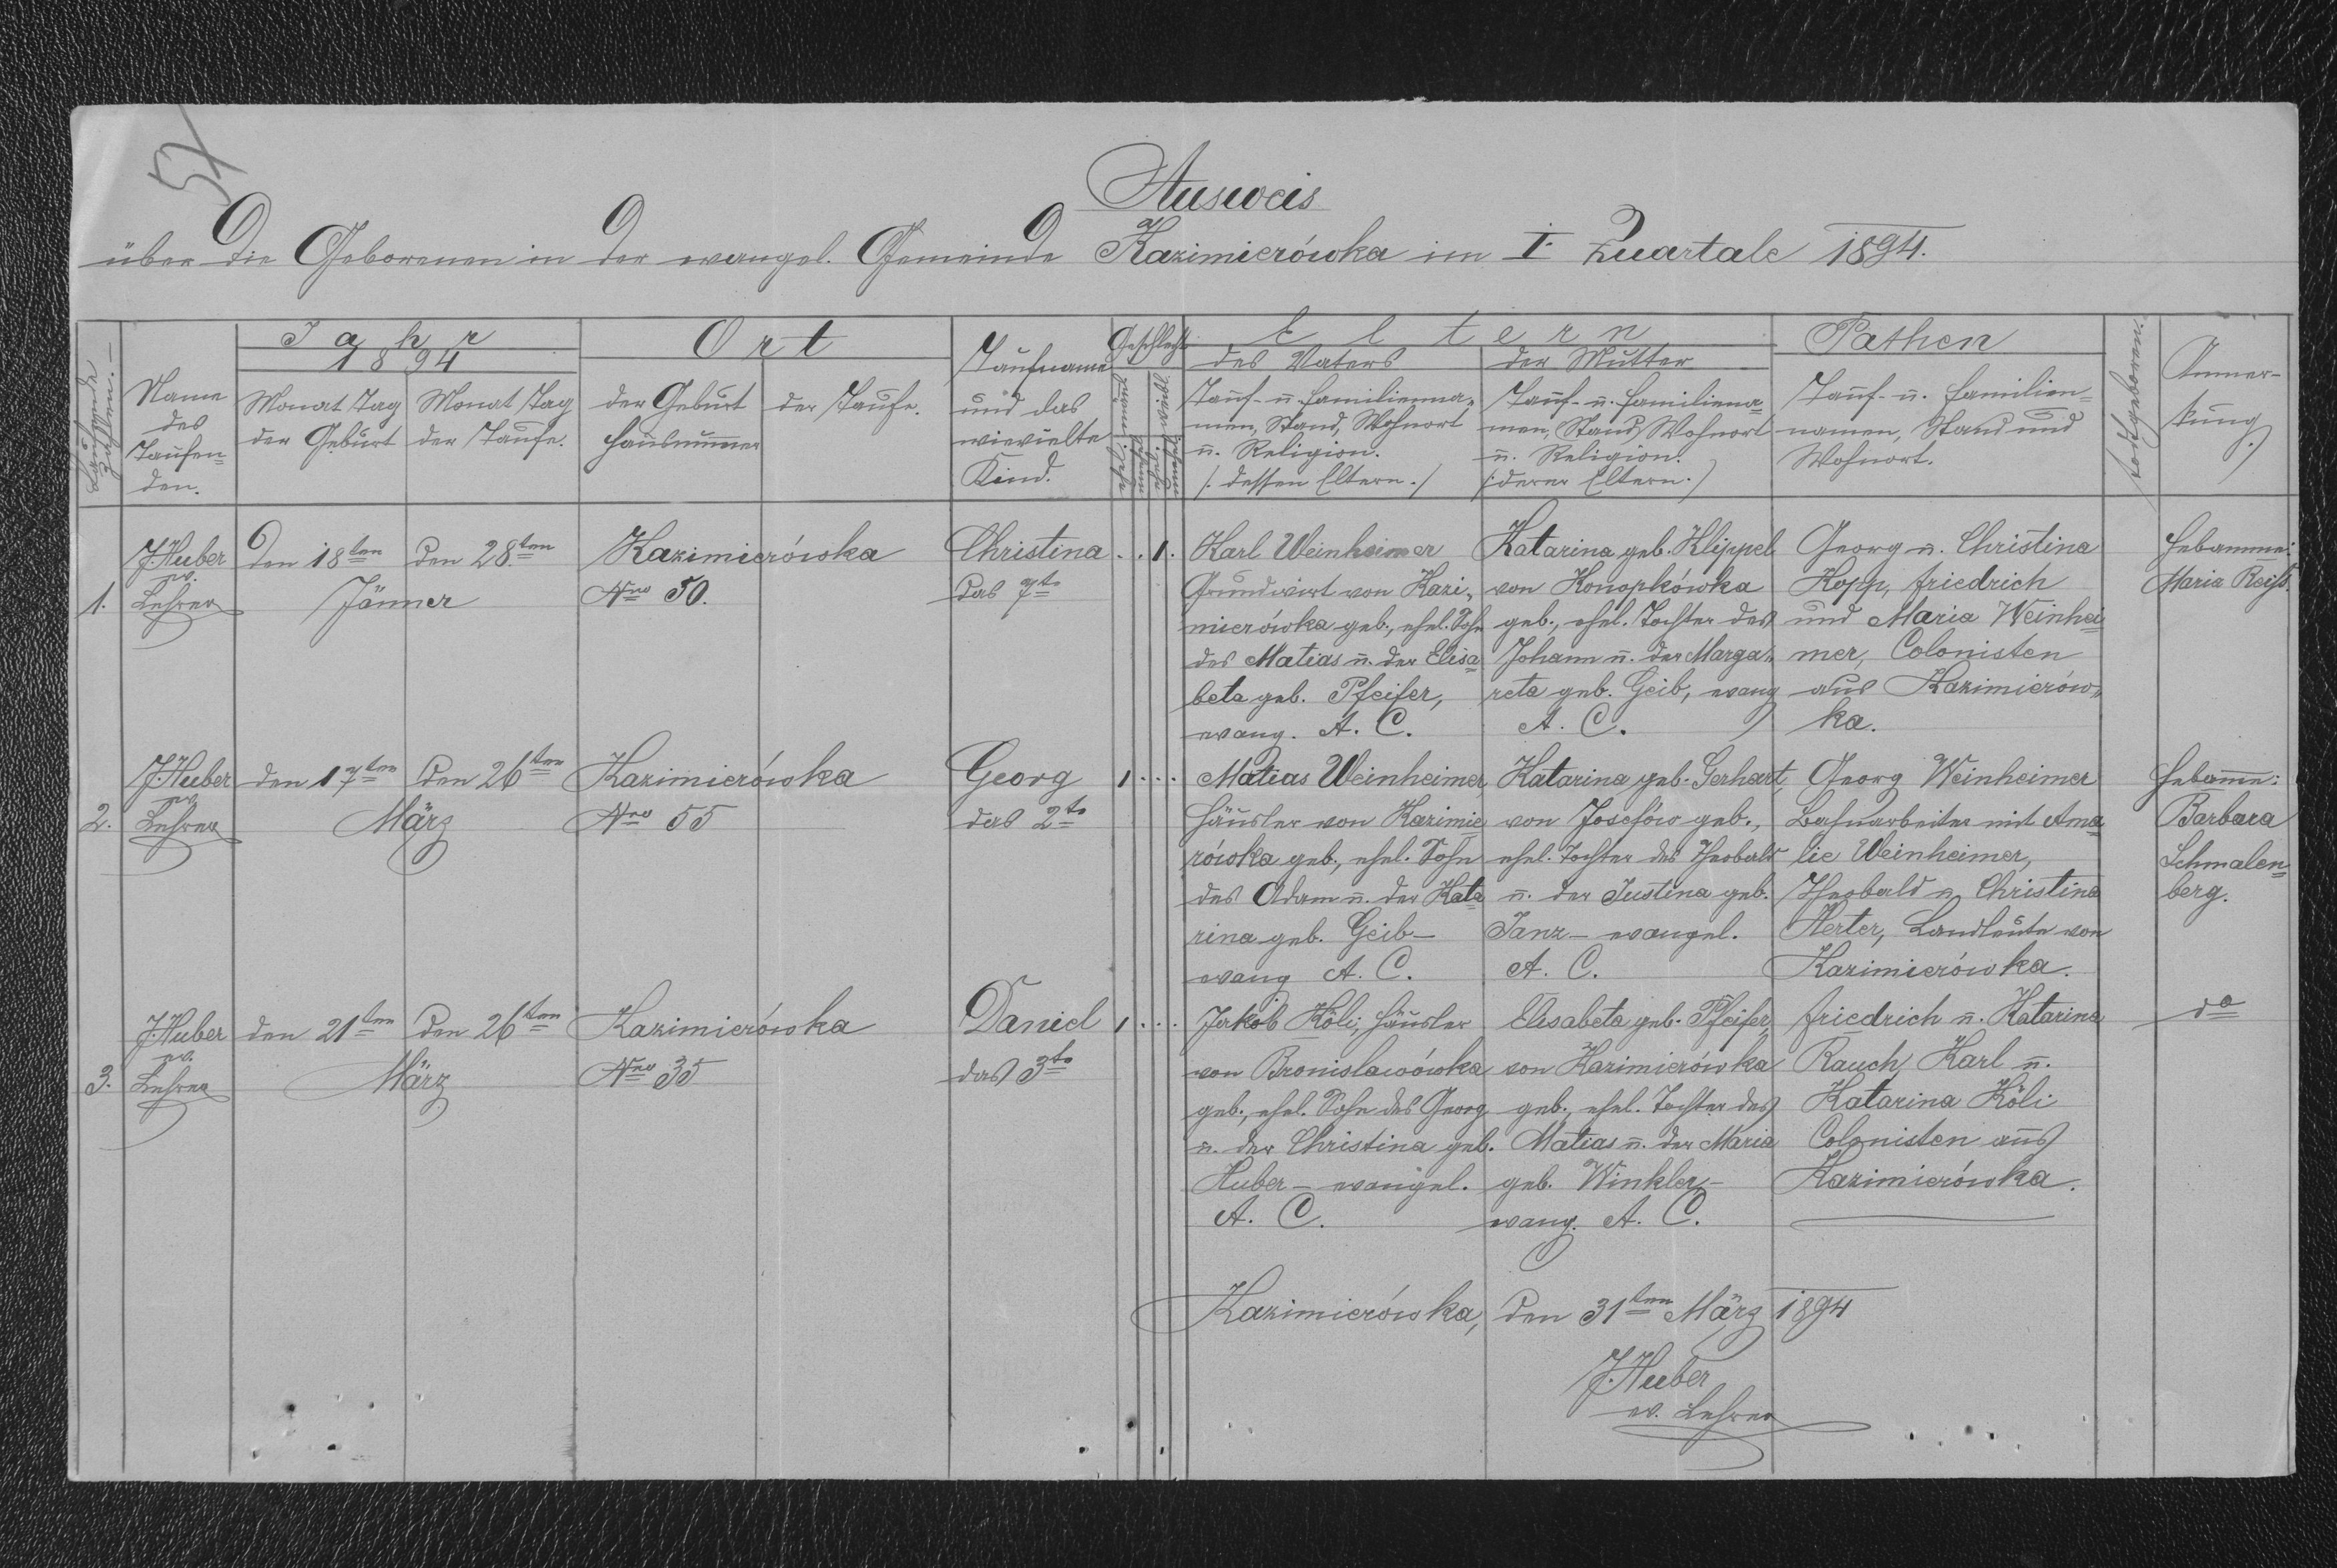 51
Ausweis
über die Geborenen in der evangel. Gemeinde Kazimierówka im I. Quartale 1894.
Name
des
Taufen=
den.
Jahr
1894
Monat Tag
der Geburt
Monat Tag
der Taufe.
Ort
der Geburt
Hausnummer
der Taufe.
Taufname
und das
wievielte
Kind.
Geschlecht
Eltern
des Vaters
Tauf- u. Familienna=
men, Stand, Wohnort
u. Religion.
/: dessen Eltern :/
der Mutter
Tauf- u. Familiena=
men, Stand, Wohnort
u. Religion.
/: derer Eltern :/
Pathen
Tauf- u. Familien=
namen, Stand und
Wohnort.
todtgeboren.
Anmer-
kung.
1.
J. Huber
ev.
Lehrer
Den 18ten
den 28ten
Jänner
Kazimierówka
Nro 50.
Christina
das 7te
. . 1 .
Karl Weinheimer
Grundwirt von Kazi=
mierówka geb., ehel. Sohn
des Matias u. der Elisa=
beta geb. Pfeifer,
evang. A. C.
Katarina geb. Klippel
von Konopkówka
geb., ehel. Tochter des
Johann u. der Marga=
reta geb. Geib, evang
A. C.
Georg u. Christina
Kopp, Friedrich
und Maria Weinhei=
mer, Colonisten
aus Kazimierów=
ka.
Hebamme:
Maria Reiß.
2.
J. Huber
ev.
Lehrer
den 17ten
den 26ten
März
Kazimierówka
Nro 55
Georg
das 2te
1 . . .
Matias Weinheimer
Häusler von Kazimie=
rówka geb., ehel. Sohn
des Adam u. der Kata=
rina geb. Geib –
evang A. C.
Katarina geb. Gerhart,
von Josefów geb.,
ehel. Tochter des Theobald
u. der Justina geb.
Janz – evangel.
A. C.
Georg Weinheimer
Bahnarbeiter mit Ama=
lie Weinheimer,
Theobald u. Christina
Herter, Landleute von
Kazimierówka.
Hebamme:
Barbara
Schmalen=
berg.
3.
J. Huber
ev.
Lehrer
den 21ten
den 26ten
März
Kazimierówka
Nro 35
Daniel
das 3te
1 . . .
Jakob Köli, Häusler
von Bronislawówka
geb., ehel. Sohn des Georg
u. der Christina geb.
Huber – evangel.
A. C.
Elisabeta geb. Pfeifer,
von Kazimierówka
geb., ehel. Tochter des
Matias u. der Maria
geb. Winkler –
evang. A. C.
Friedrich u. Katarina
Rauch, Karl u.
Katarina Köli
Colonisten aus
Kazimierówka.
do
Kazimierówka, den 31ten März 1894
J. Huber
ev. Lehrer